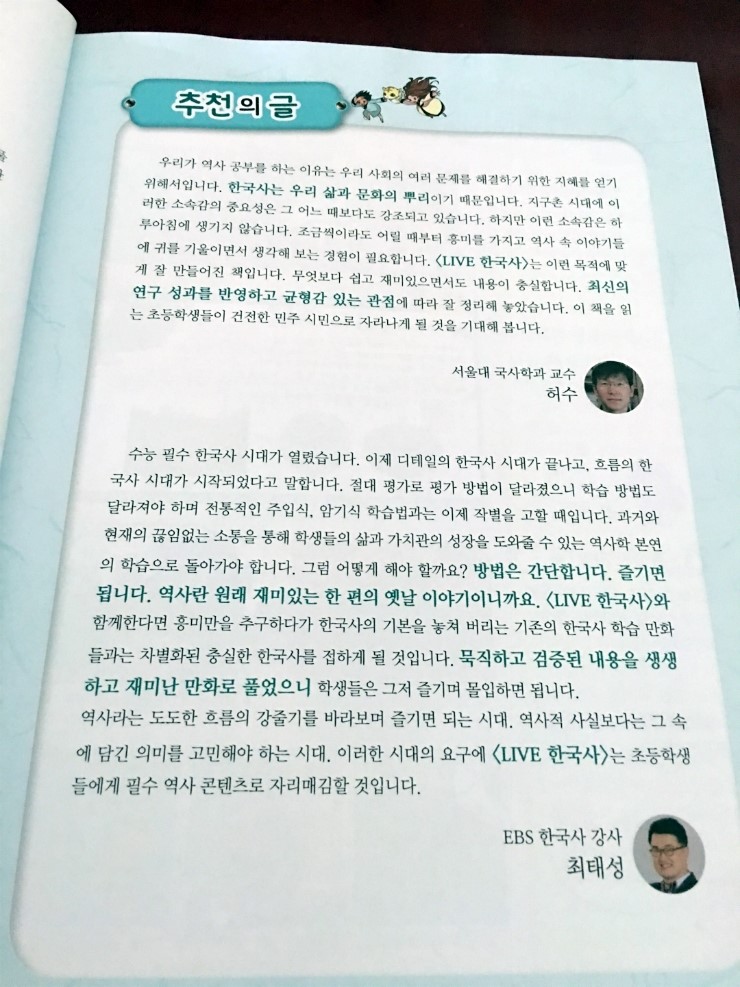 추천의 글
우리가 역사 공부를 하는 이유는 우리 사회의 여러 문제를 해결하기 위한 지혜를 얻기
위해서입니다. 한국사는 우리 삶과 문화의 뿌리이기 때문입니다. 지구촌 시대에 이
러한 소속감의 중요성은 그 어느 때보다도 강조되고 있습니다. 하지만 이런 소속감은 하
루아침에 생기지 않습니다. 조금씩이라도 어릴 때부터 흥미를 가지고 역사 속 이야기들
에 귀를 기울이면서 생각해 보는 경험이 필요합니다. 〈LIVE 한국사〉는 이런 목적에 맞
게 잘 만들어진 책입니다. 무엇보다 쉽고 재미있으면서도 내용이 충실합니다. 최신의
연구 성과를 반영하고 균형감 있는 관점에 따라 잘 정리해 놓았습니다. 이 책을 읽
는 초등학생들이 건전한 민주 시민으로 자라나게 될 것을 기대해 봅니다.
서울대 국사학과 교수
허수
수능 필수 한국사 시대가 열렸습니다. 이제 디테일의 한국사 시대가 끝나고, 흐름의 한
국사 시대가 시작되었다고 말합니다. 절대 평가로 평가 방법이 달라졌으니 학습 방법도
달라져야 하며 전통적인 주입식, 암기식 학습법과는 이제 작별을 고할 때입니다. 과거와
현재의 끊임없는 소통을 통해 학생들의 삶과 가치관의 성장을 도와줄 수 있는 역사학 본연
의 학습으로 돌아가야 합니다. 그럼 어떻게 해야 할까요? 방법은 간단합니다. 즐기면
됩니다. 역사란 원래 재미있는 한 편의 옛날 이야기이니까요. 〈LIVE 한국사〉와
함께한다면 흥미만을 추구하다가 한국사의 기본을 놓쳐 버리는 기존의 한국사 학습 만화
들과는 차별화된 충실한 한국사를 접하게 될 것입니다. 묵직하고 검증된 내용을 생생
하고 재미난 만화로 풀었으니 학생들은 그저 즐기며 몰입하면 됩니다.
역사라는 도도한 흐름의 강줄기를 바라보며 즐기면 되는 시대. 역사적 사실보다는 그 속
에 담긴 의미를 고민해야 하는 시대. 이러한 시대의 요구에 〈LIVE 한국사〉는 초등학생
들에게 필수 역사 콘텐츠로 자리매김할 것입니다.
EBS 한국사 강사
최태성